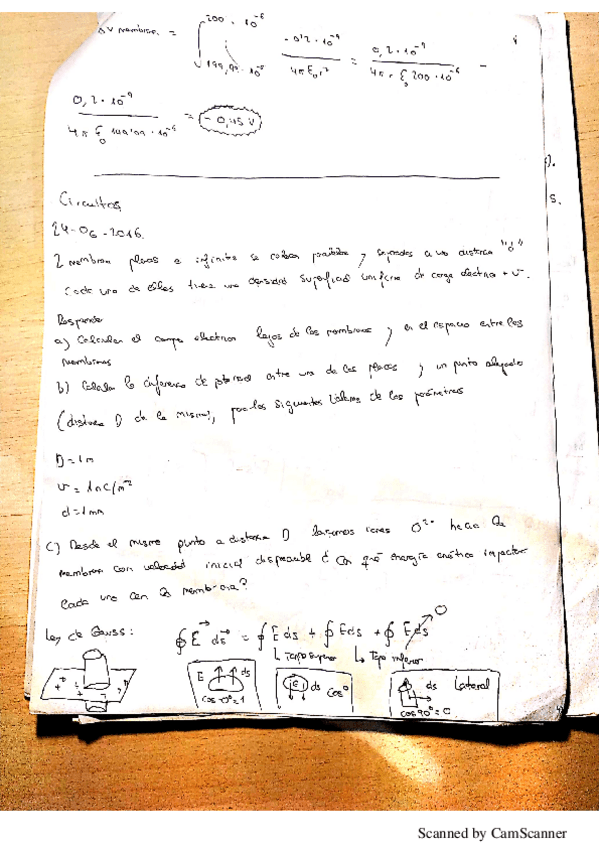 ΔV membrana =
200 · 10⁻⁶
199,99 · 10⁻⁶
-0'2 · 10⁻⁹
4π ε₀ r²
=
0,2 · 10⁻⁹
4π · ε₀ 200 · 10⁻⁶
-
0,2 · 10⁻⁹
4π ε₀ 199'99 · 10⁻⁶
= - 0,45 V
Circuitos
24-06-2016.
2 membranas planas e infinitas se colocan paralelas y separadas a una distancia "d"
Cada una de ellas tiene una densidad superficial uniforme de carga electrica + σ.
Responde
a) Calcular el campo electrico lejos de las membranas y en el espacio entre las
membranas
b) Calcular la diferencia de potencial entre una de las placas y un punto alejado
(distancia D de la misma), para los siguientes valores de los parámetros
D = 1m
σ = 1nC/m²
d = 1mm
c) Desde el mismo punto a distancia D iones O²⁻ hacia la
membrana con velocidad inicial despreciable ¿Con qué energía cinética impacta
cada uno con la membrana?
Ley de Gauss: ∮ E⃗ ds⃗ = ∮ E ds + ∮ E ds + ∮ E ds 0
↳ Tapa superior ↳ Tapa inferior
E ds
cos 0º = 1
ds cos 0
ds Lateral
cos 90º = 0
Scanned by CamScanner